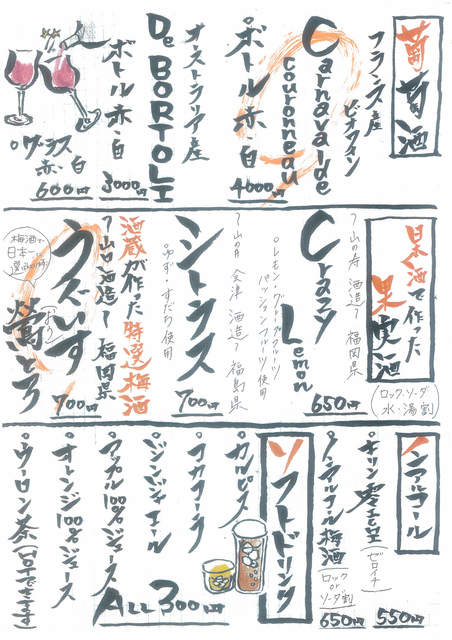 葡萄酒
フランス産
ビオワイン
Carnaval de
couronneau
・ボトル 赤・白
4000円
オーストラリア産
De BORTOLI
ボトル 赤・白
3000円
○グラス
赤・白
600円
日本酒で作った
果実酒
(ロック・ソーダ
水・湯割)
〜山の寿 酒造〜 福岡県
Crazy Lemon
650円
○レモン・グレープフルーツ
パッションフルーツ使用
〜山の井 会津酒造〜 福島県
シトラス
700円
ゆず・すだち使用
酒蔵が作った特選梅酒
〜山口酒造〜 福岡県
うぐいす
700円
鶯とろ
梅酒で
日本一に
ノンアルコール
・キリン零ICHI
(ゼロイチ)
550円
・ノンアルコール梅酒
(ロック
or
ソーダ割)
650円
ソフトドリンク
・カルピス
・コカコーラ
・ジンジャエール
・アップル100%ジュース
・オレンジ100%ジュース
・ウーロン茶(HOTできます)
ALL 300円